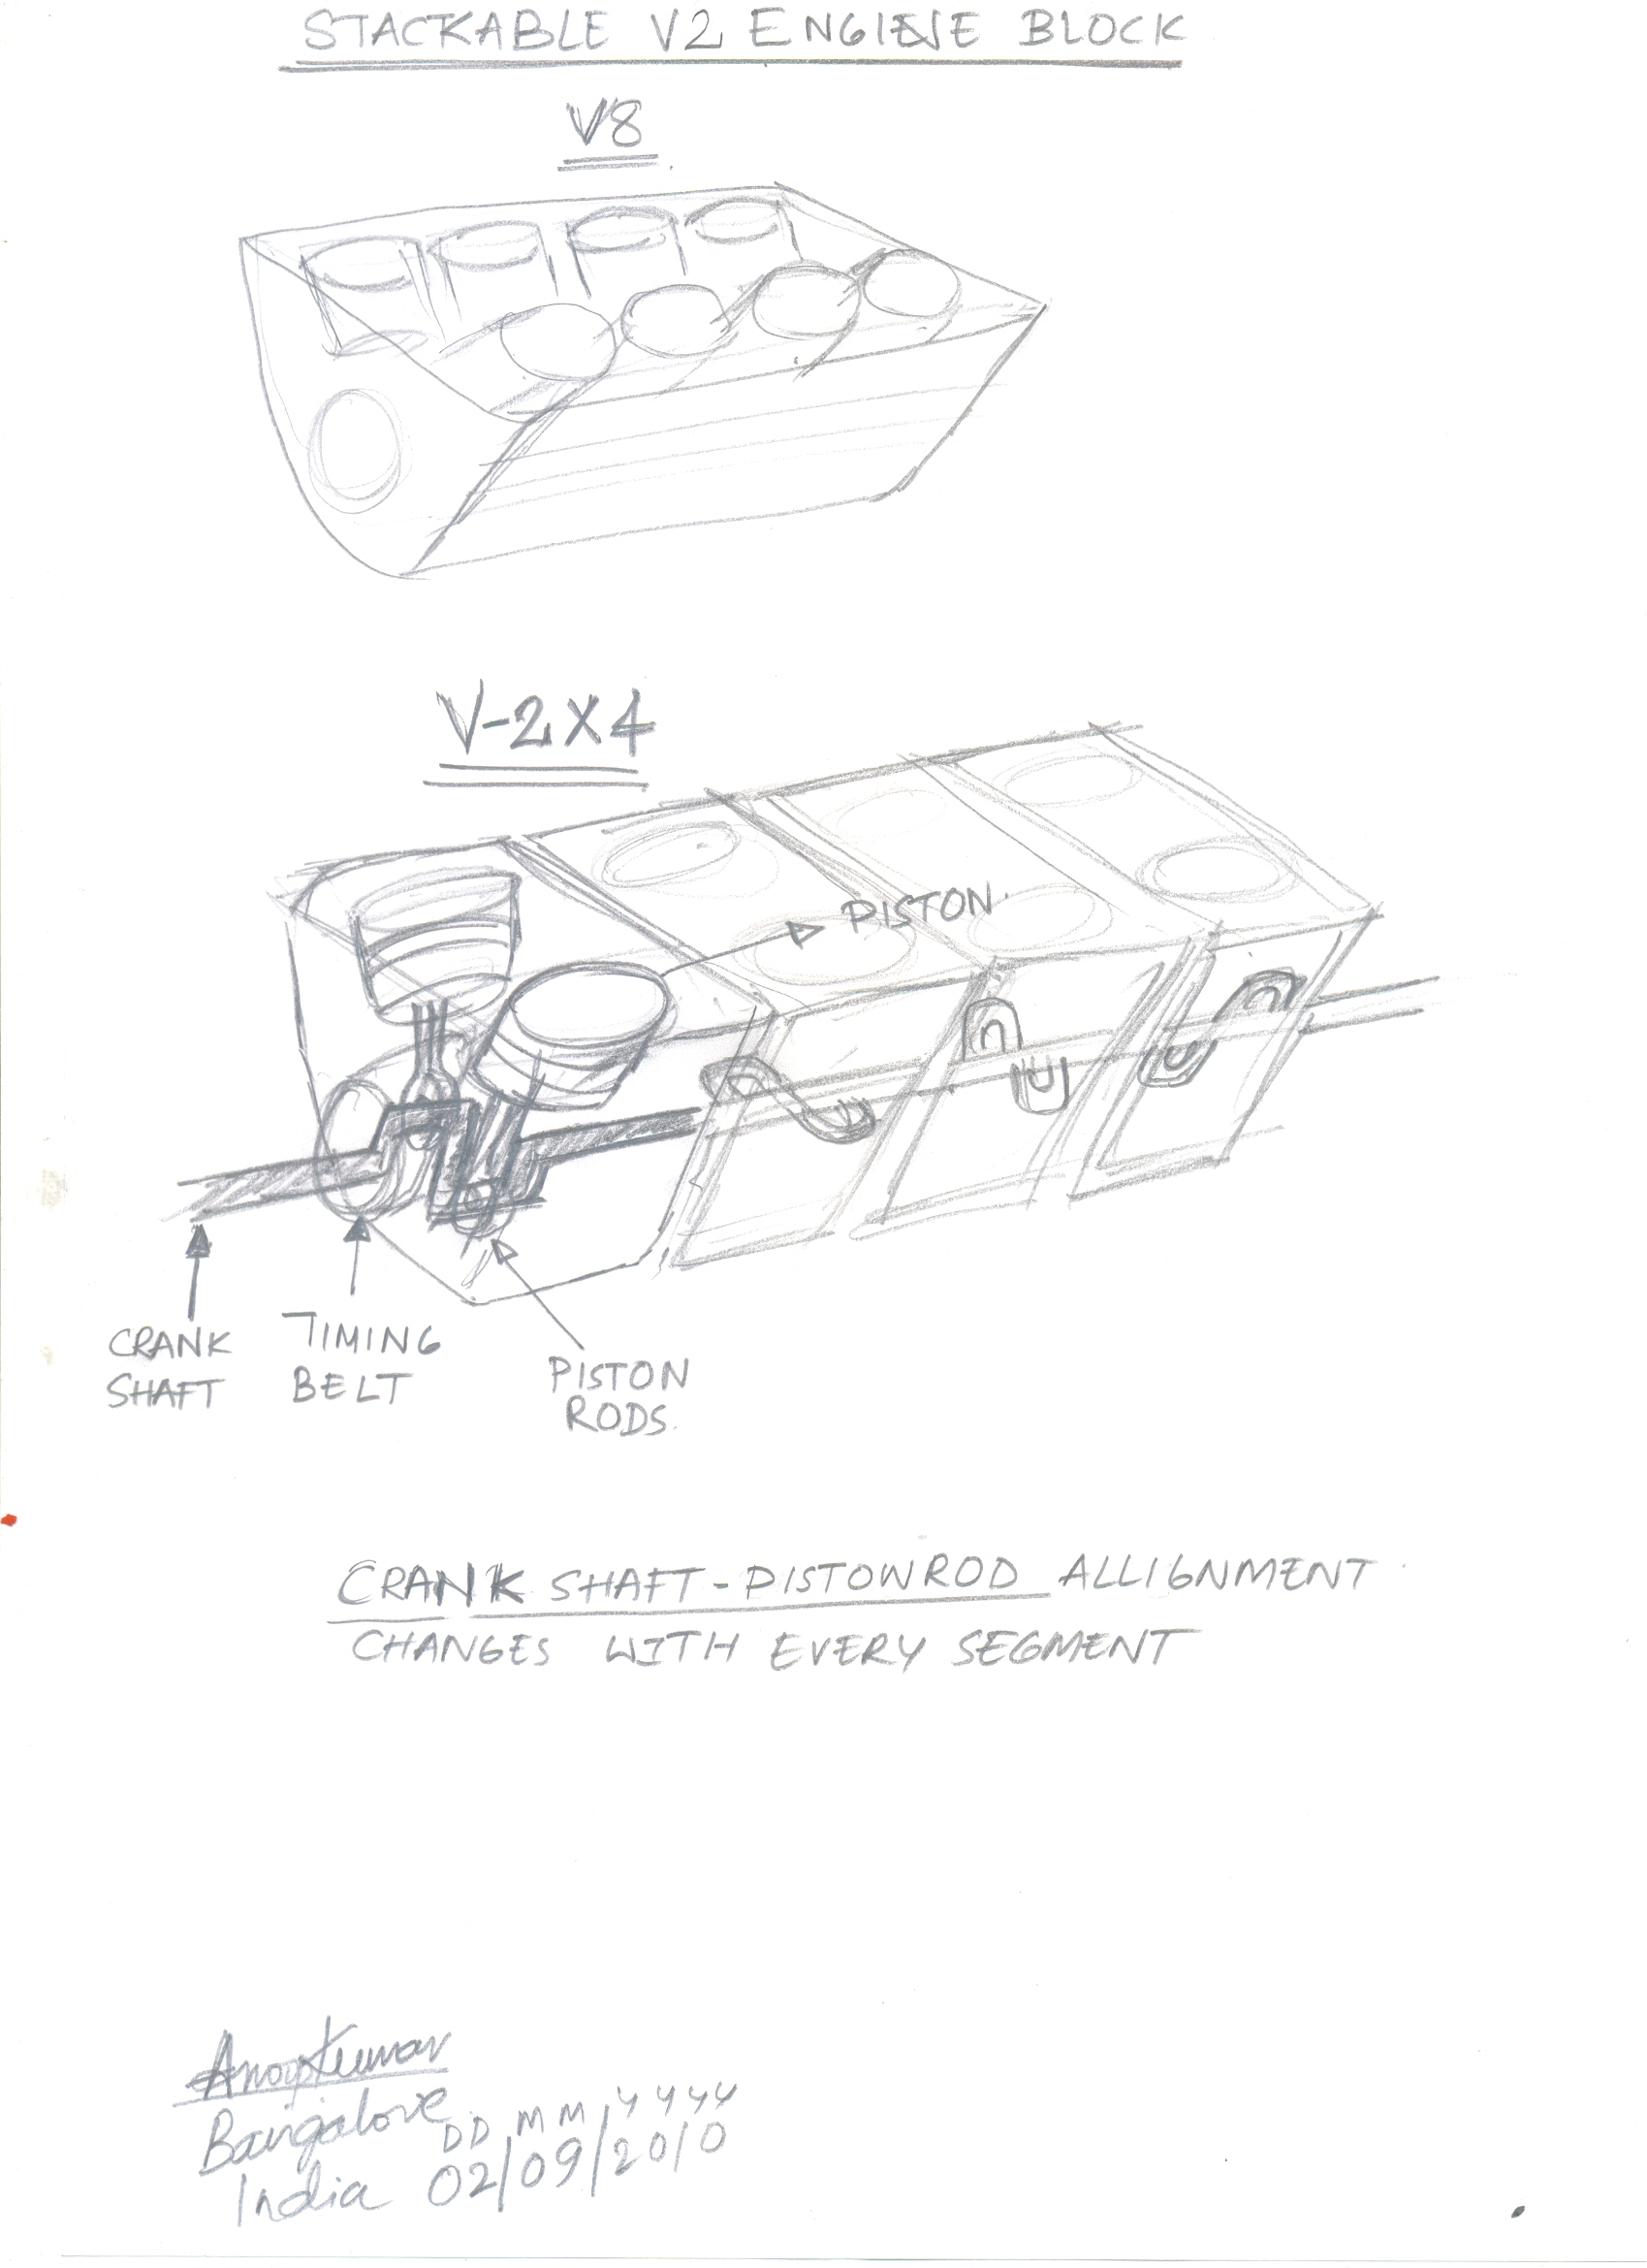 STACKABLE V2 ENGIENE BLOCK
V8
V-2X4
PISTON.
CRANK
SHAFT
TIMING
BELT
PISTON
RODS.
CRANK SHAFT-PISTONROD ALLIGNMENT
CHANGES WITH EVERY SEGMENT
AnoopKumar
Bangalore
DD MM YYYY
India 02/09/2010